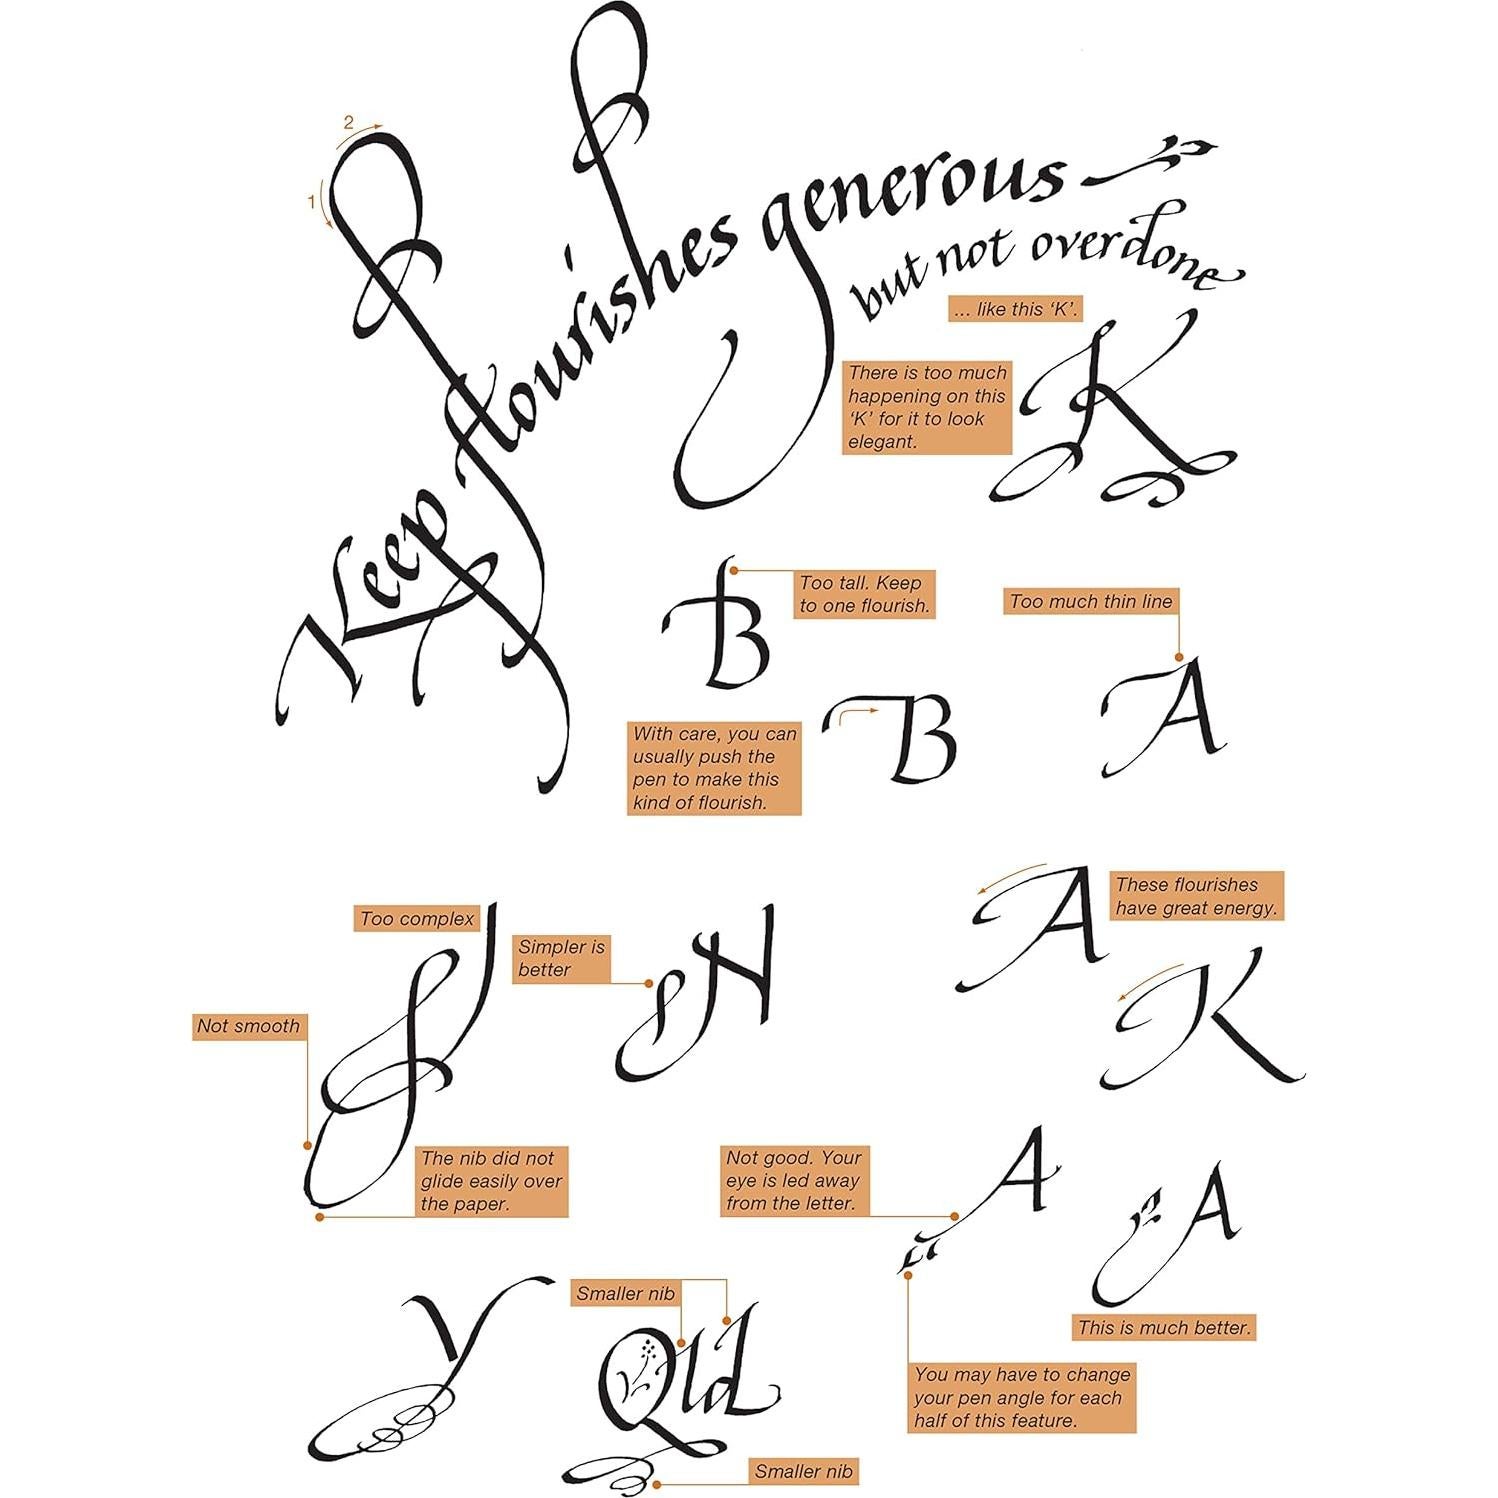 2
1
Keep flourishes generous
but not overdone
... like this ‘K’.
There is too much
happening on this
‘K’ for it to look
elegant.
K
B
Too tall. Keep
to one flourish.
Too much thin line
A
With care, you can
usually push the
pen to make this
kind of flourish.
B
Too complex
Simpler is
better
N
A
These flourishes
have great energy.
K
Not smooth
The nib did not
glide easily over
the paper.
Not good. Your
eye is led away
from the letter.
A
A
This is much better.
Y
Smaller nib
Smaller nib
You may have to change
your pen angle for each
half of this feature.